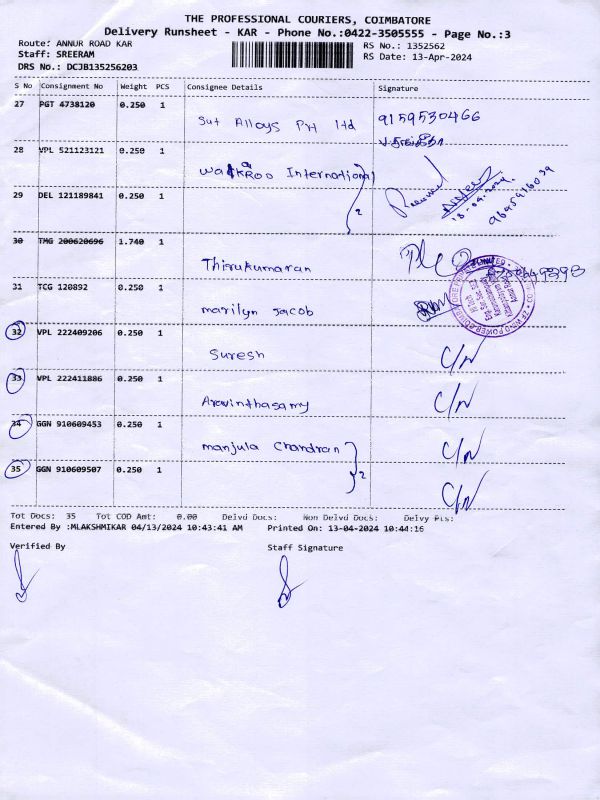 THE PROFESSIONAL COURIERS, COIMBATORE
Delivery Runsheet - KAR - Phone No.:0422-3505555 - Page No.:3
Route: ANNUR ROAD KAR
Staff: SREERAM
DRS No.: DCJB135256203
RS No.: 1352562
RS Date: 13-Apr-2024
S No Consignment No Weight PCS Consignee Details Signature
27 PGT 4738120 0.250 1
Sut Alloys Pvt ltd 9159530466
28 VPL 521123121 0.250 1
Walkaroo International
29 DEL 121189841 0.250 1
2
18.04.2024
30 TMG 200620696 1.740 1
Thirukumaran
31 TCG 120892 0.250 1
marilyn jacob
32 VPL 222409206 0.250 1
Suresh C/N
33 VPL 222411886 0.250 1
Aravinthasamy C/N
34 GGN 910609453 0.250 1
manjula Chandran C/N
35 GGN 910609507 0.250 1
2 C/N
Tot Docs: 35 Tot COD Amt: 0.00 Delvd Docs: Non Delvd Docs: Delvy Pls:
Entered By :MLAKSHMIKAR 04/13/2024 10:43:41 AM Printed On: 13-04-2024 10:44:16
Verified By Staff Signature